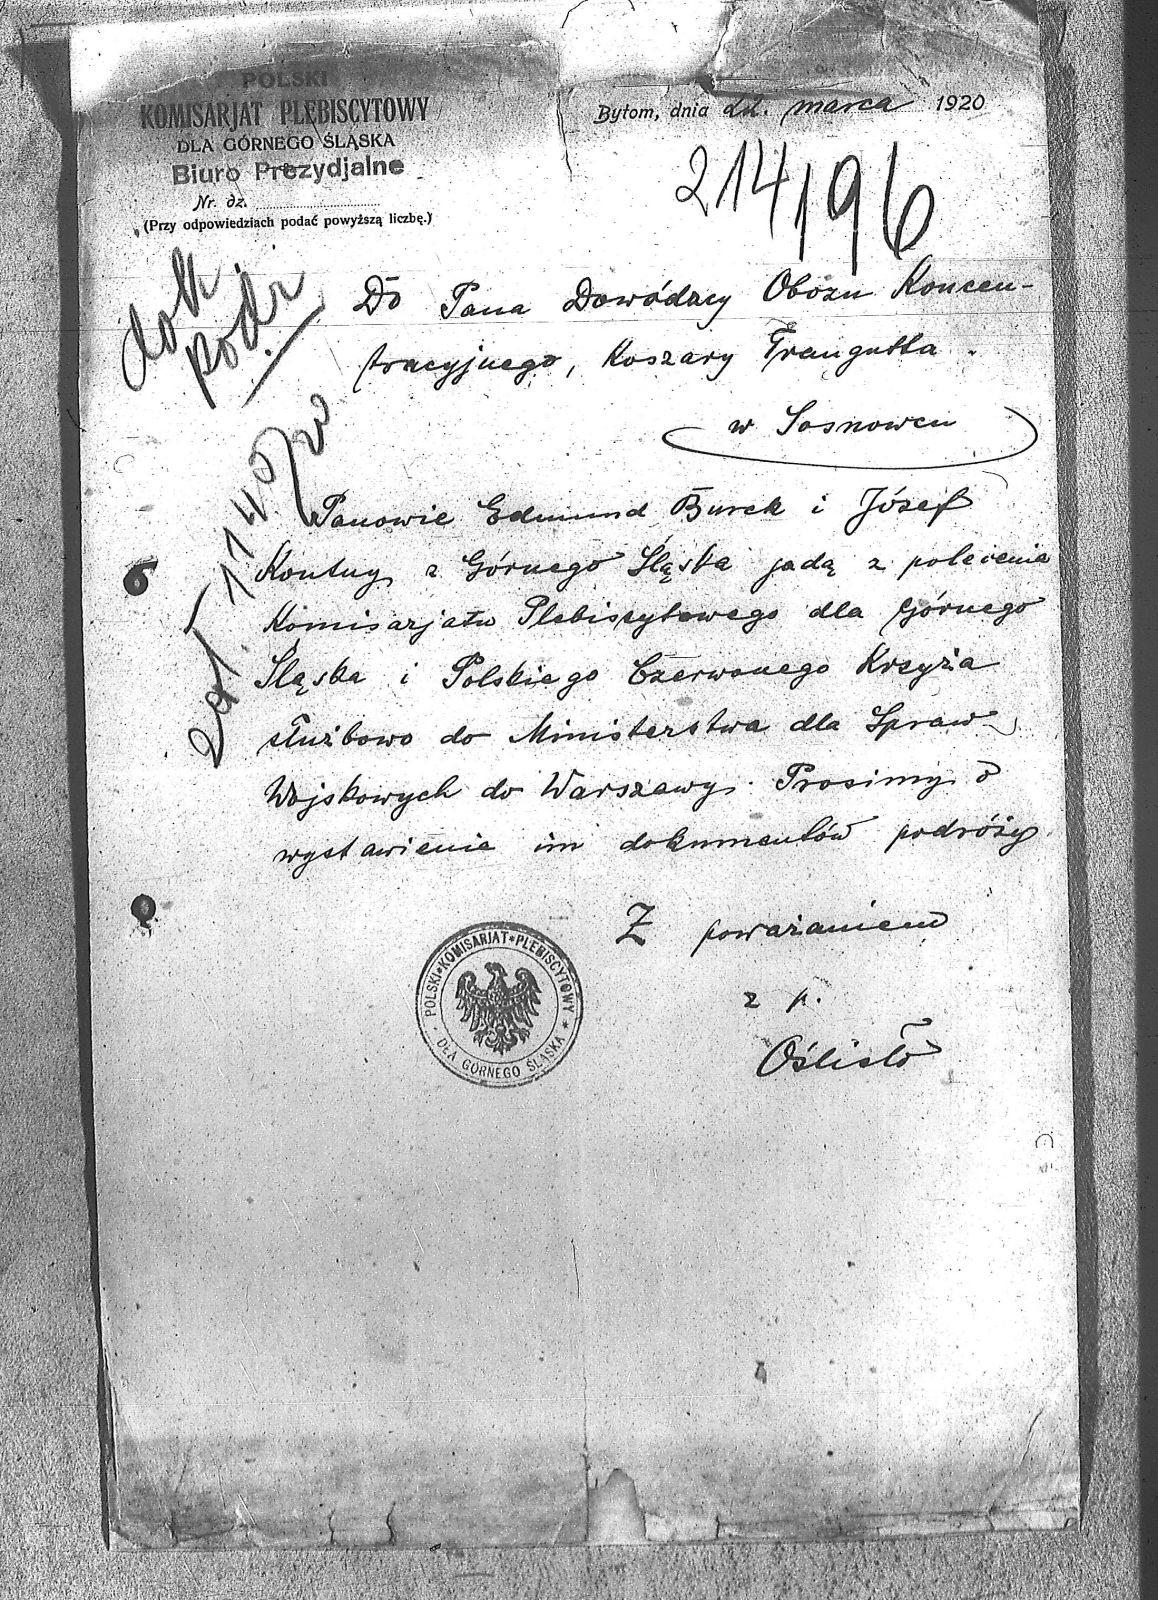 POLSKI
KOMISARJAT PLEBISCYTOWY
DLA GÓRNEGO ŚLĄSKA
Biuro Prezydjalne
Nr. dz.
(Przy odpowiedziach podać powyższą liczbę.)
Bytom, dnia 22. marca 1920
214196
dok
podr
Do Pana Dowódzcy Obozu Koncen-
tracyjnego, Koszary Traugutta.
w Sosnowcu
Panowie Edmund Burek i Józef
Kontny z Górnego Śląska jadą z polecenia
Komisarjatu Plebiscytowego dla Górnego
Śląska i Polskiego Czerwonego Krzyża
służbowo do Ministerstwa dla Spraw
Wojskowych do Warszawy. Prosimy o
wystawienie im dokumentów podróży
Z poważaniem
z p.
Oślisło
POLSKI KOMISARJAT PLEBISCYTOWY
DLA GÓRNEGO ŚLĄSKA